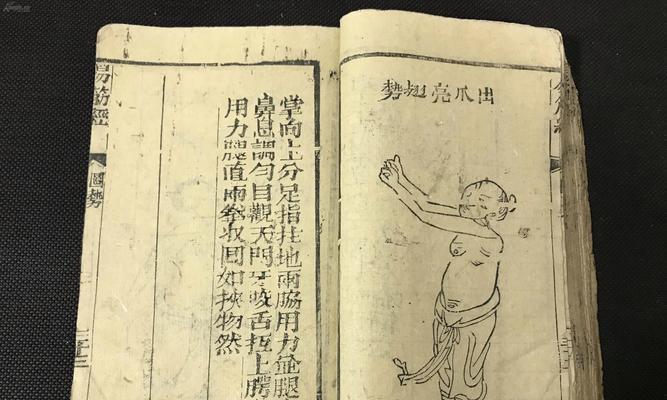 出爪亮翅勢
掌向上分足指拄地兩脇用力並腿
鼻息調勻目觀天門牙咬舌抵上腭
用力腿直兩拳收回如挾物然
易筋經
圖勢